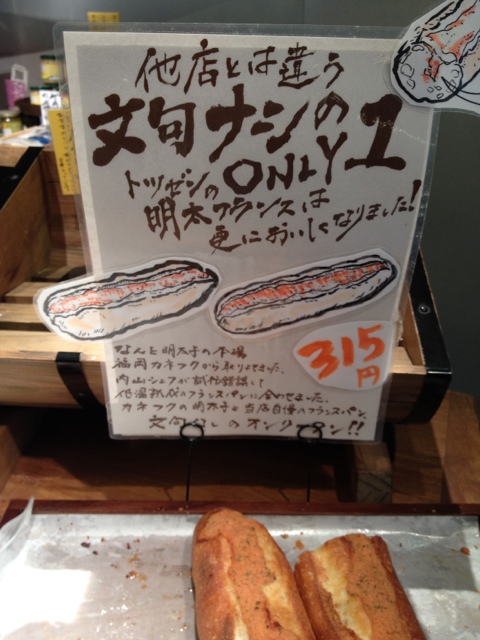 他店とは違う
文句ナシの
ONLY 1
トツゼンの
明太フランスは
更においしくなりました!
315
円
なんと明太子の本場
福岡カネフクから取りよせました。
内山シェフが試行錯誤して
低温熟成のフランスパンに合わせました。
カネフクの明太子と当店自慢のフランスパン。
文句なしのオンリーワン!!